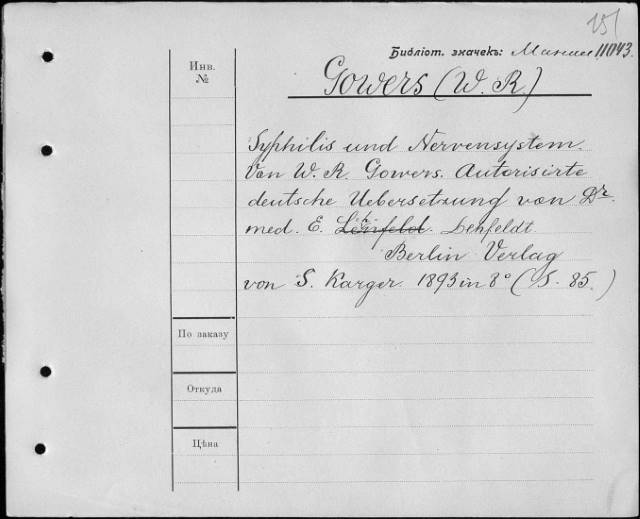 151
Библіот. значекъ: 11043.
Инв.
№
Gowers (W. R.)
Syphilis und Nervensystem.
Von W. R. Gowers. Autorisirte
deutsche Uebersetzung von Dr
med. E. Lehfeldt.
Berlin Verlag
von S. Karger. 1893 in 8° (S. 85.)
По заказу
Откуда
Цѣна